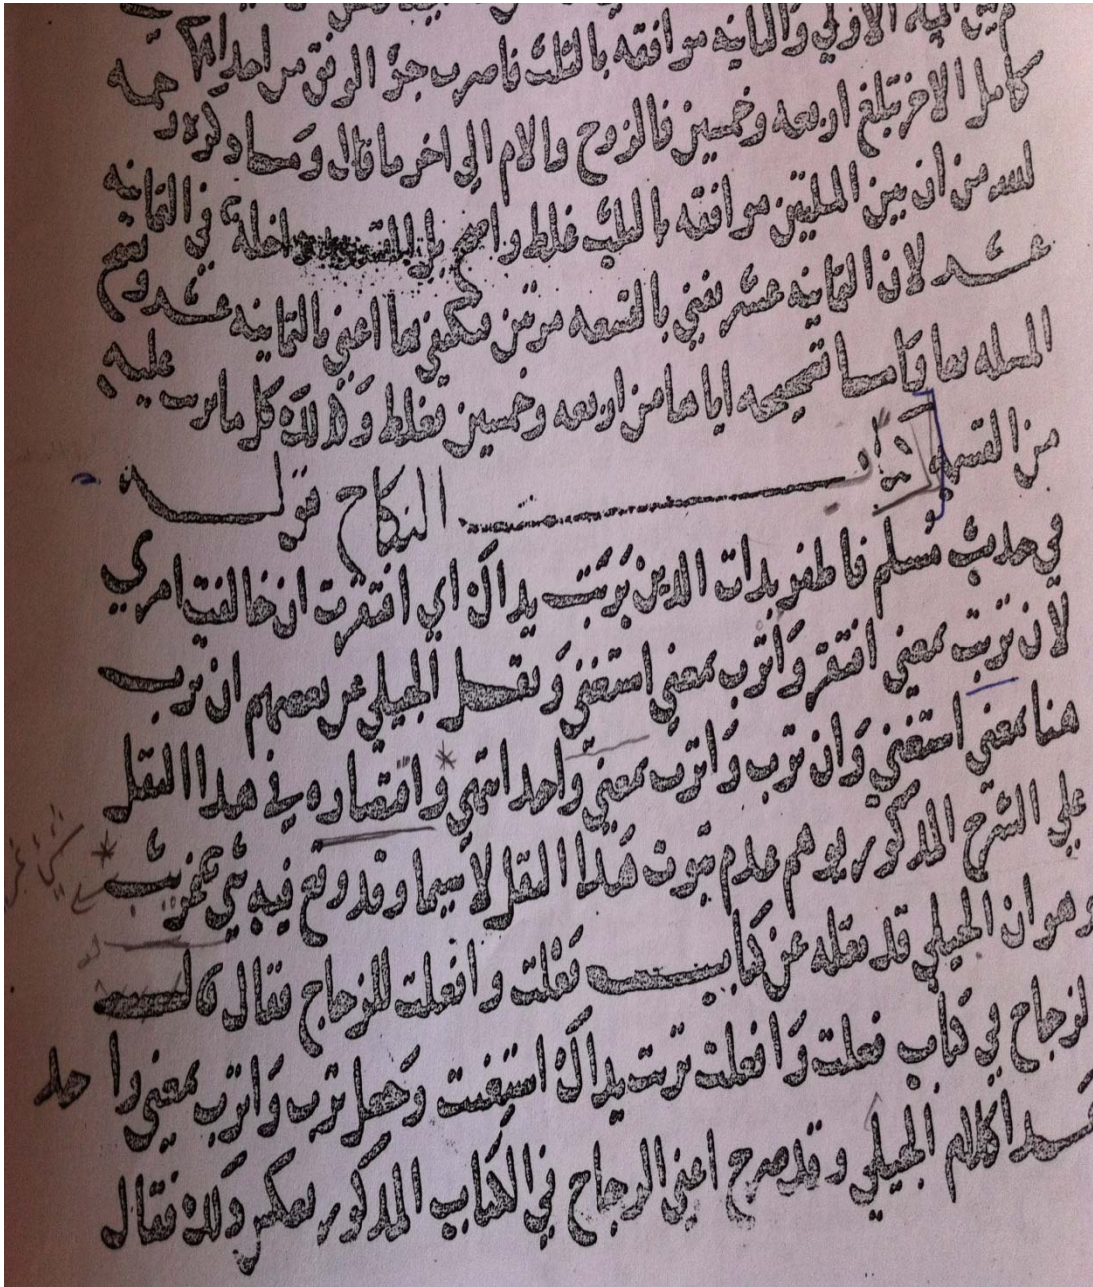 بين المسئلة الاولي والثانيه موافقه بالثلث فاضرب جزؤ الوفق من احداهما
كامل الاخر تبلغ اربعه وخمسين فالزوج والام الي اخر ما قال وما ذكره رحمه
لله من ان بين المسلتين موافقه بالثلث غلط واضح بل داخلة في الثمانيه
عشر لان الثمانيه عشر تفني بالتسعه مرتين فيكتفي بها اعني بالثمانيه عشر وتقسم
المسله بها واما تصحيحه اياها من اربعه وخمسين فغلط وكذلك كل ما ترتب عليه
من القسمه كتاب النكاح قوله
في حديث مسلم فاظفر بذات الدين تربت يداك اي افتقرت ان خالفت امري
لان ترب بمعني افتقر واترب بمعني استغني ونقل الجيلي عن بعضهم ان ترب
هنا بمعني استغني وان ترب واترب بمعني واحد انتهي واقتصاره في هذا النقل
علي الشرح المذكور يوهم عدم ثبوت هذا النقل لاسيما وقد وقع فيه شي غريب
وهو ان الجيلي قد نقله عن كتاب فعلت وافعلت للزجاج فقال قال
الزجاج في كتاب فعلت وافعلت تربت يداك استغنت وجعل ترب واترب بمعني واحد
هذا كلام الجيلي وقد صرح اعني الزجاج في الكتاب المذكور بعكس ذلك فقال